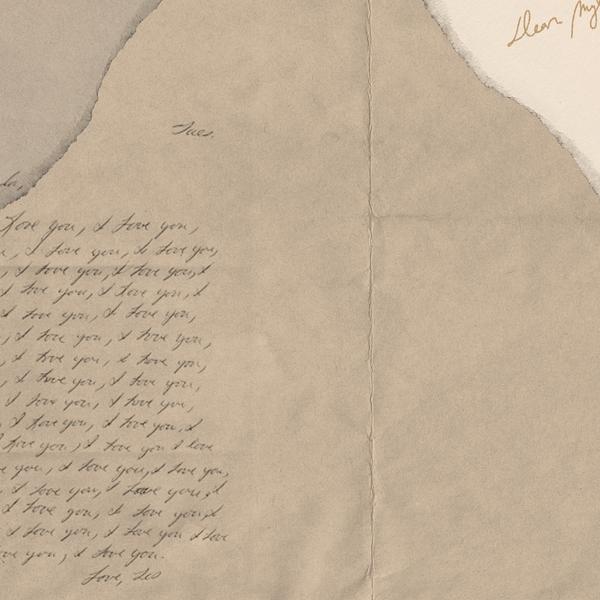 Dear
Tues.
love you, I love you,
I love you, I love you,
I love you, I love you, I
I love you, I love you, I
I love you, I love you,
I love you, I love you,
I love you, I love you,
I love you, I love you,
I love you, I love you,
I love you, I love you, I
love you, I love you I love
you, I love you, I love you,
I love you, I love you, I
I love you, I love you, I
I love you, I love you I love
you, I love you.
Love, Les